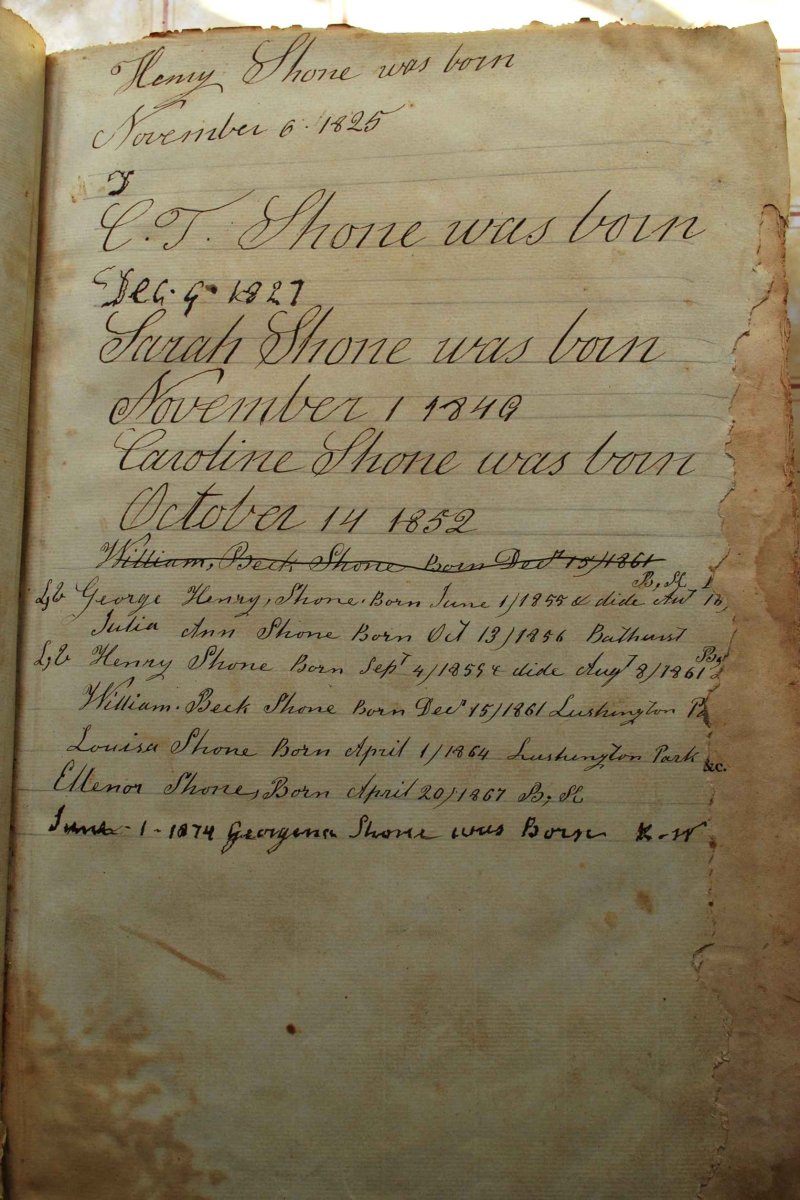 Henry Shone was born
November 6 . 1825
C. T. Shone was born
Dec. 9. 1827
Sarah Shone was born
November 1 1849
Caroline Shone was born
October 14 1852
William, Beck Shone Born Decr 15/1861
B, St
George Henry, Shone. Born June 1/1855 & dide
Julia Ann Shone Born Oct 13/1856 Bathurst
Henry Shone Born Sept 4/1859 & dide Augt 8/1861
William. Beck Shone Born Decr 15/1861 Lushington
Louisa Shone Born April 1/1864 Lushington Park &c.
Ellenor Shone, Born April 20/1867 B, St
June - 1 - 1874 Georgena Shone was Born K - W